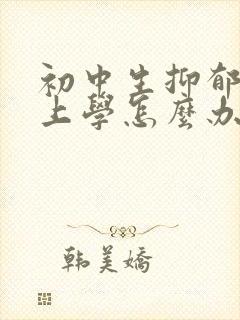 初中生抑郁
上學怎麼办
韩美嬌